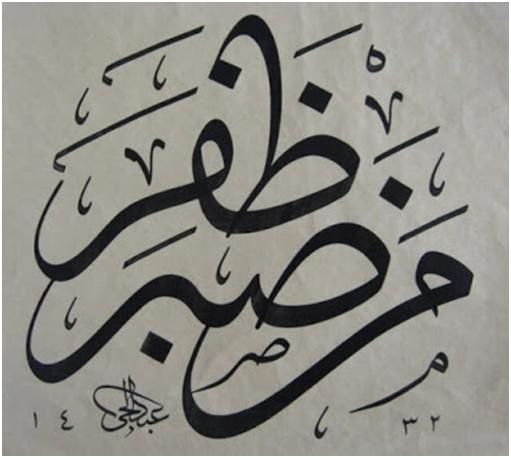 من صبر ظفر
عبدالحي
١٤٣٢